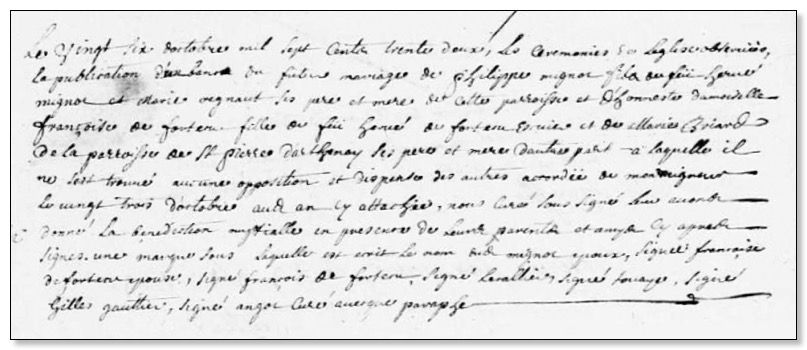 Le vingt six doctobre mil sept cents trente deux, les ceremonies de Leglise observées,
la publication d'un banc du futur mariage de Philippe mignot fils de feu hervé
mignot et Marie regnaut ses pere et mere de cette parroisse et d'honneste damoiselle
françoise de fortecu fille de feu hervé de fortecu et de Marie
De la parroisse de St pierre darthenay ses pere et mere dautre part a laquelle il
ne sest trouvé aucune opposition et dispense des autres accordée de monseigneur
le vingt trois doctobre audt an cy attachée, nous curé sous signé leur avons
donné La benediction nuptialle en presence de leurs parents et amys cy aprets
signés. une marque sous laquelle est ecrit le nom dudt mignot epoux, signé françoise
de fortecu epouse, signé françois de fortecu, signé levallier, signé touaye, signé
Gilles gauthier, signé angot curé avecque paraphe